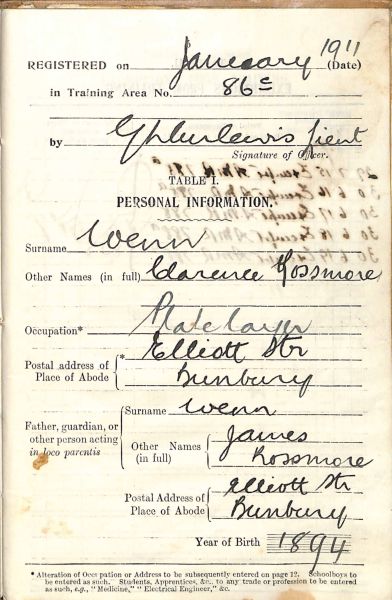 REGISTERED on January 1911 (Date)
in Training Area No. 86c
by Lieut
Signature of Officer.
TABLE I.
PERSONAL INFORMATION.
Surname Wenn
Other Names (in full) Clarence Rossmore
Occupation* Platelayer
Postal address of Place of Abode * Elliott Str
Bunbury
Father, guardian, or other person acting in loco parentis
Surname Wenn
Other Names (in full) James
Rossmore
Postal Address of Place of Abode Elliott Str
Bunbury
Year of Birth 1894
* Alteration of Occupation or Address to be subsequently entered on page 12. Schoolboys to
be entered as such. Students, Apprentices, &c., to any trade or profession to be entered
as such, e.g., "Medicine," "Electrical Engineer," &c.